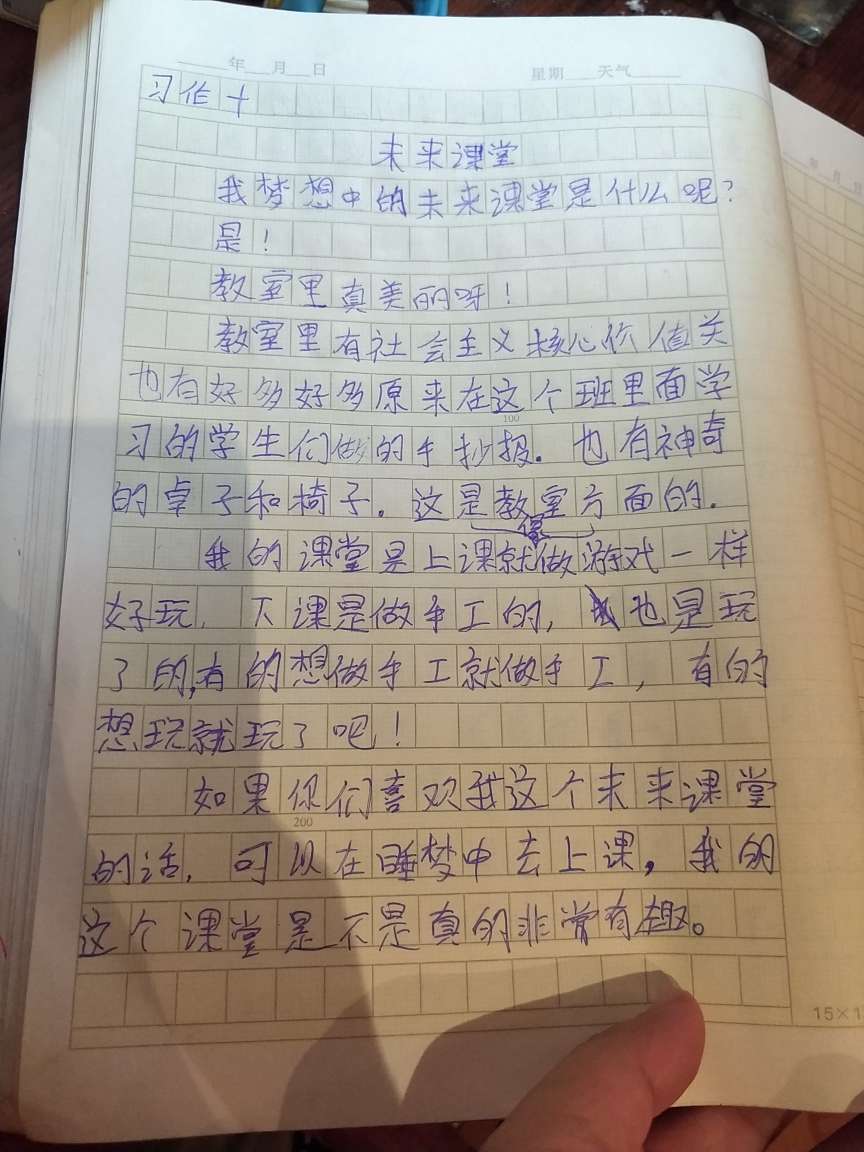 年 月 日 星期 天气
习作十
未来课堂
我梦想中的未来课堂是什么呢?
是!
教室里真美丽呀!
教室里有社会主义核心价值关
也有好多好多原来在这个班里面学
100
习的学生们做的手抄报.也有神奇
的桌子和椅子.这是教室方面的.
我的课堂是上课就像做游戏一样
好玩,下课是做手工的,也是玩
了的,有的想做手工就做手工,有的
想玩就玩了吧!
如果你们喜欢我这个未来课堂
200
的话,可以在睡梦中去上课,我的
这个课堂是不是真的非常有趣。
15×1
年 月 日